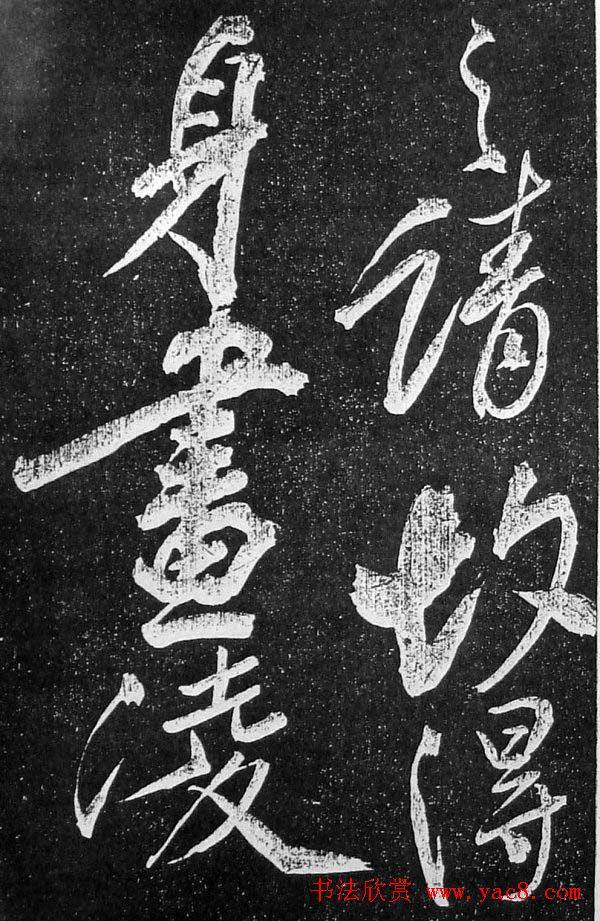 之請故得
身畫凌
书法欣赏 www.yac8.com